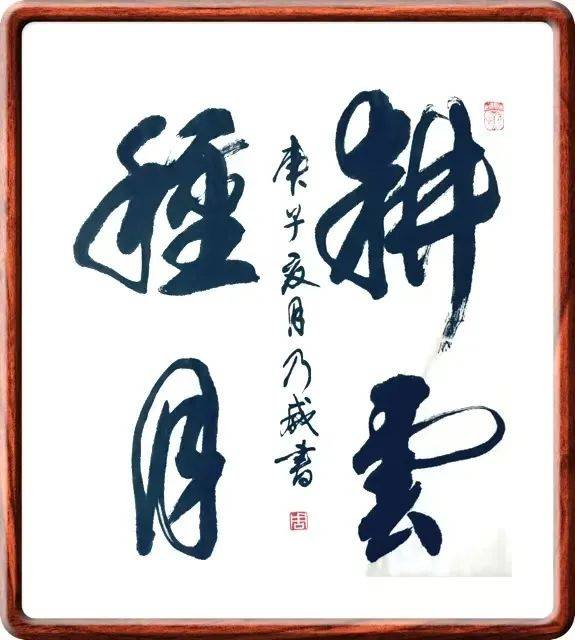 耕雲
種月
庚子夏月乃威書